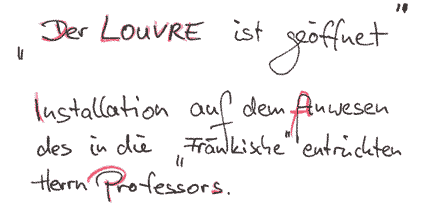 „Der LOUVRE ist geöffnet"
Installation auf dem Anwesen
des in die „Fränkische" entrückten
Herrn Professors.